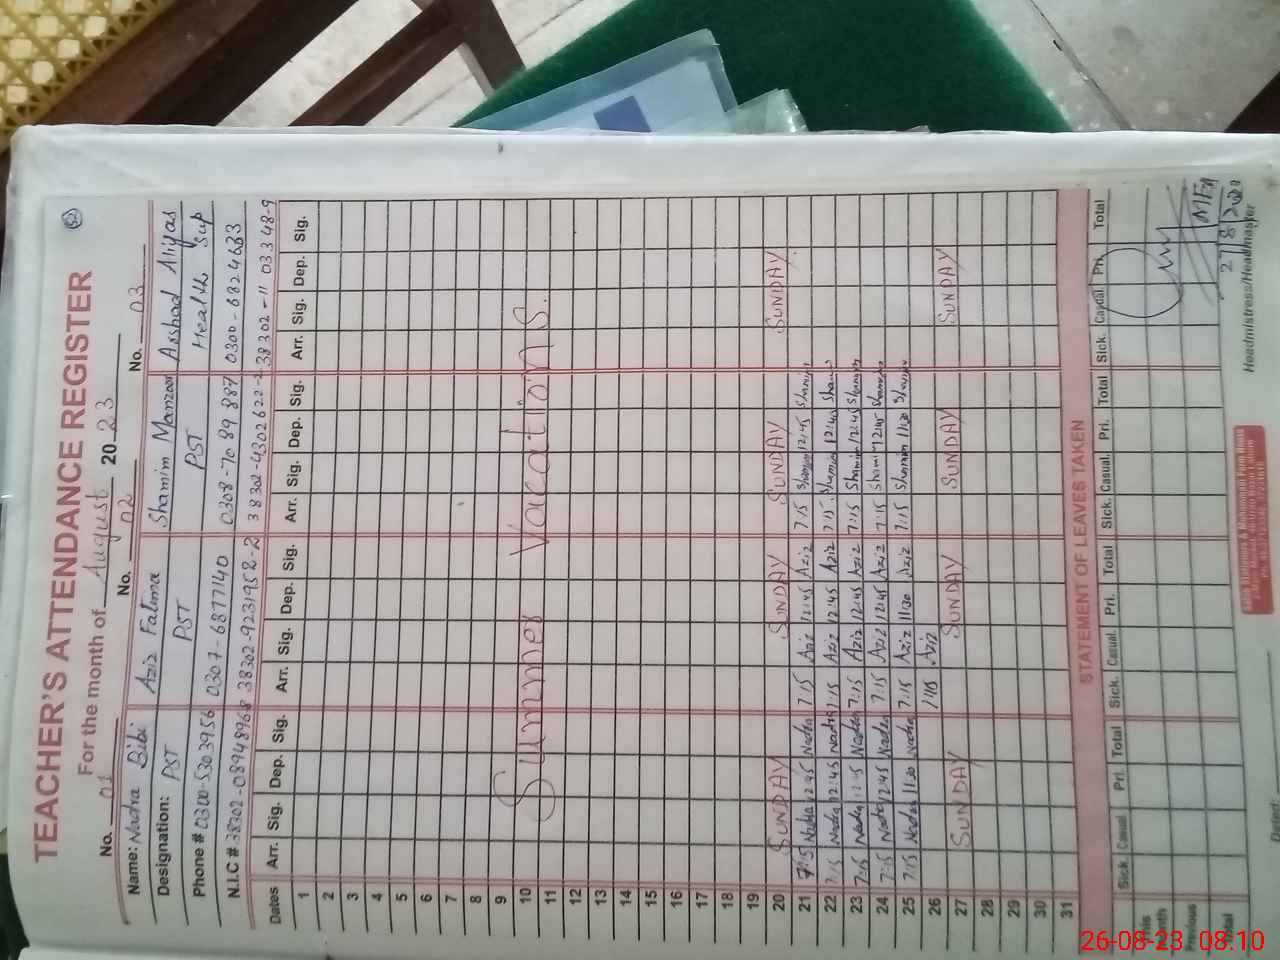 52
TEACHER'S ATTENDANCE REGISTER
For the month of August 20 23
No. 01 No. 02 No. 03
Name: Nadra Bibi Aziz Fatima Shamim Manzoor Asshad Aliyas
Designation: PST PST PST Health Sup
Phone # 0300-5303956 0307-6877140 0308-7089887 0300-6824683
N.I.C # 38302-08948968 38302-9231952-2 38302-4302622-2 38302-11033 48-9
Dates Arr. Sig. Dep. Sig. Arr. Sig. Dep. Sig. Arr. Sig. Dep. Sig. Arr. Sig. Dep. Sig.
1
2
3
4
5
6
7
8
9
10 Summer Vacations.
11
12
13
14
15
16
17
18
19
20 SUNDAY SUNDAY SUNDAY SUNDAY
21 7:15 Nadra 12:45 Nadra 7:15 Aziz 12:45 Aziz 7:15 Shamim 12:45 Shamim
22 7:15 Nadra 12:45 Nadra 7:15 Aziz 12:45 Aziz 7:15 Shamim 12:45 Shamim
23 7:15 Nadra 12:45 Nadra 7:15 Aziz 12:45 Aziz 7:15 Shamim 12:45 Shamim
24 7:15 Nadra 12:45 Nadra 7:15 Aziz 12:45 Aziz 7:15 Shamim 12:45 Shamim
25 7:15 Nadra 11:30 Nadra 7:15 Aziz 11:30 Aziz 7:15 Shamim 11:30 Shamim
26 Aziz
27 SUNDAY SUNDAY SUNDAY SUNDAY
28
29
30
31
STATEMENT OF LEAVES TAKEN
Sick. Casual. Pri. Total Sick. Casual. Pri. Total Sick. Casual. Pri. Total Sick. Casual. Pri. Total
This Month
Previous
Total
MEA
27/8/2023
Headmistress/Headmaster
Dated:
26-08-23 08:10